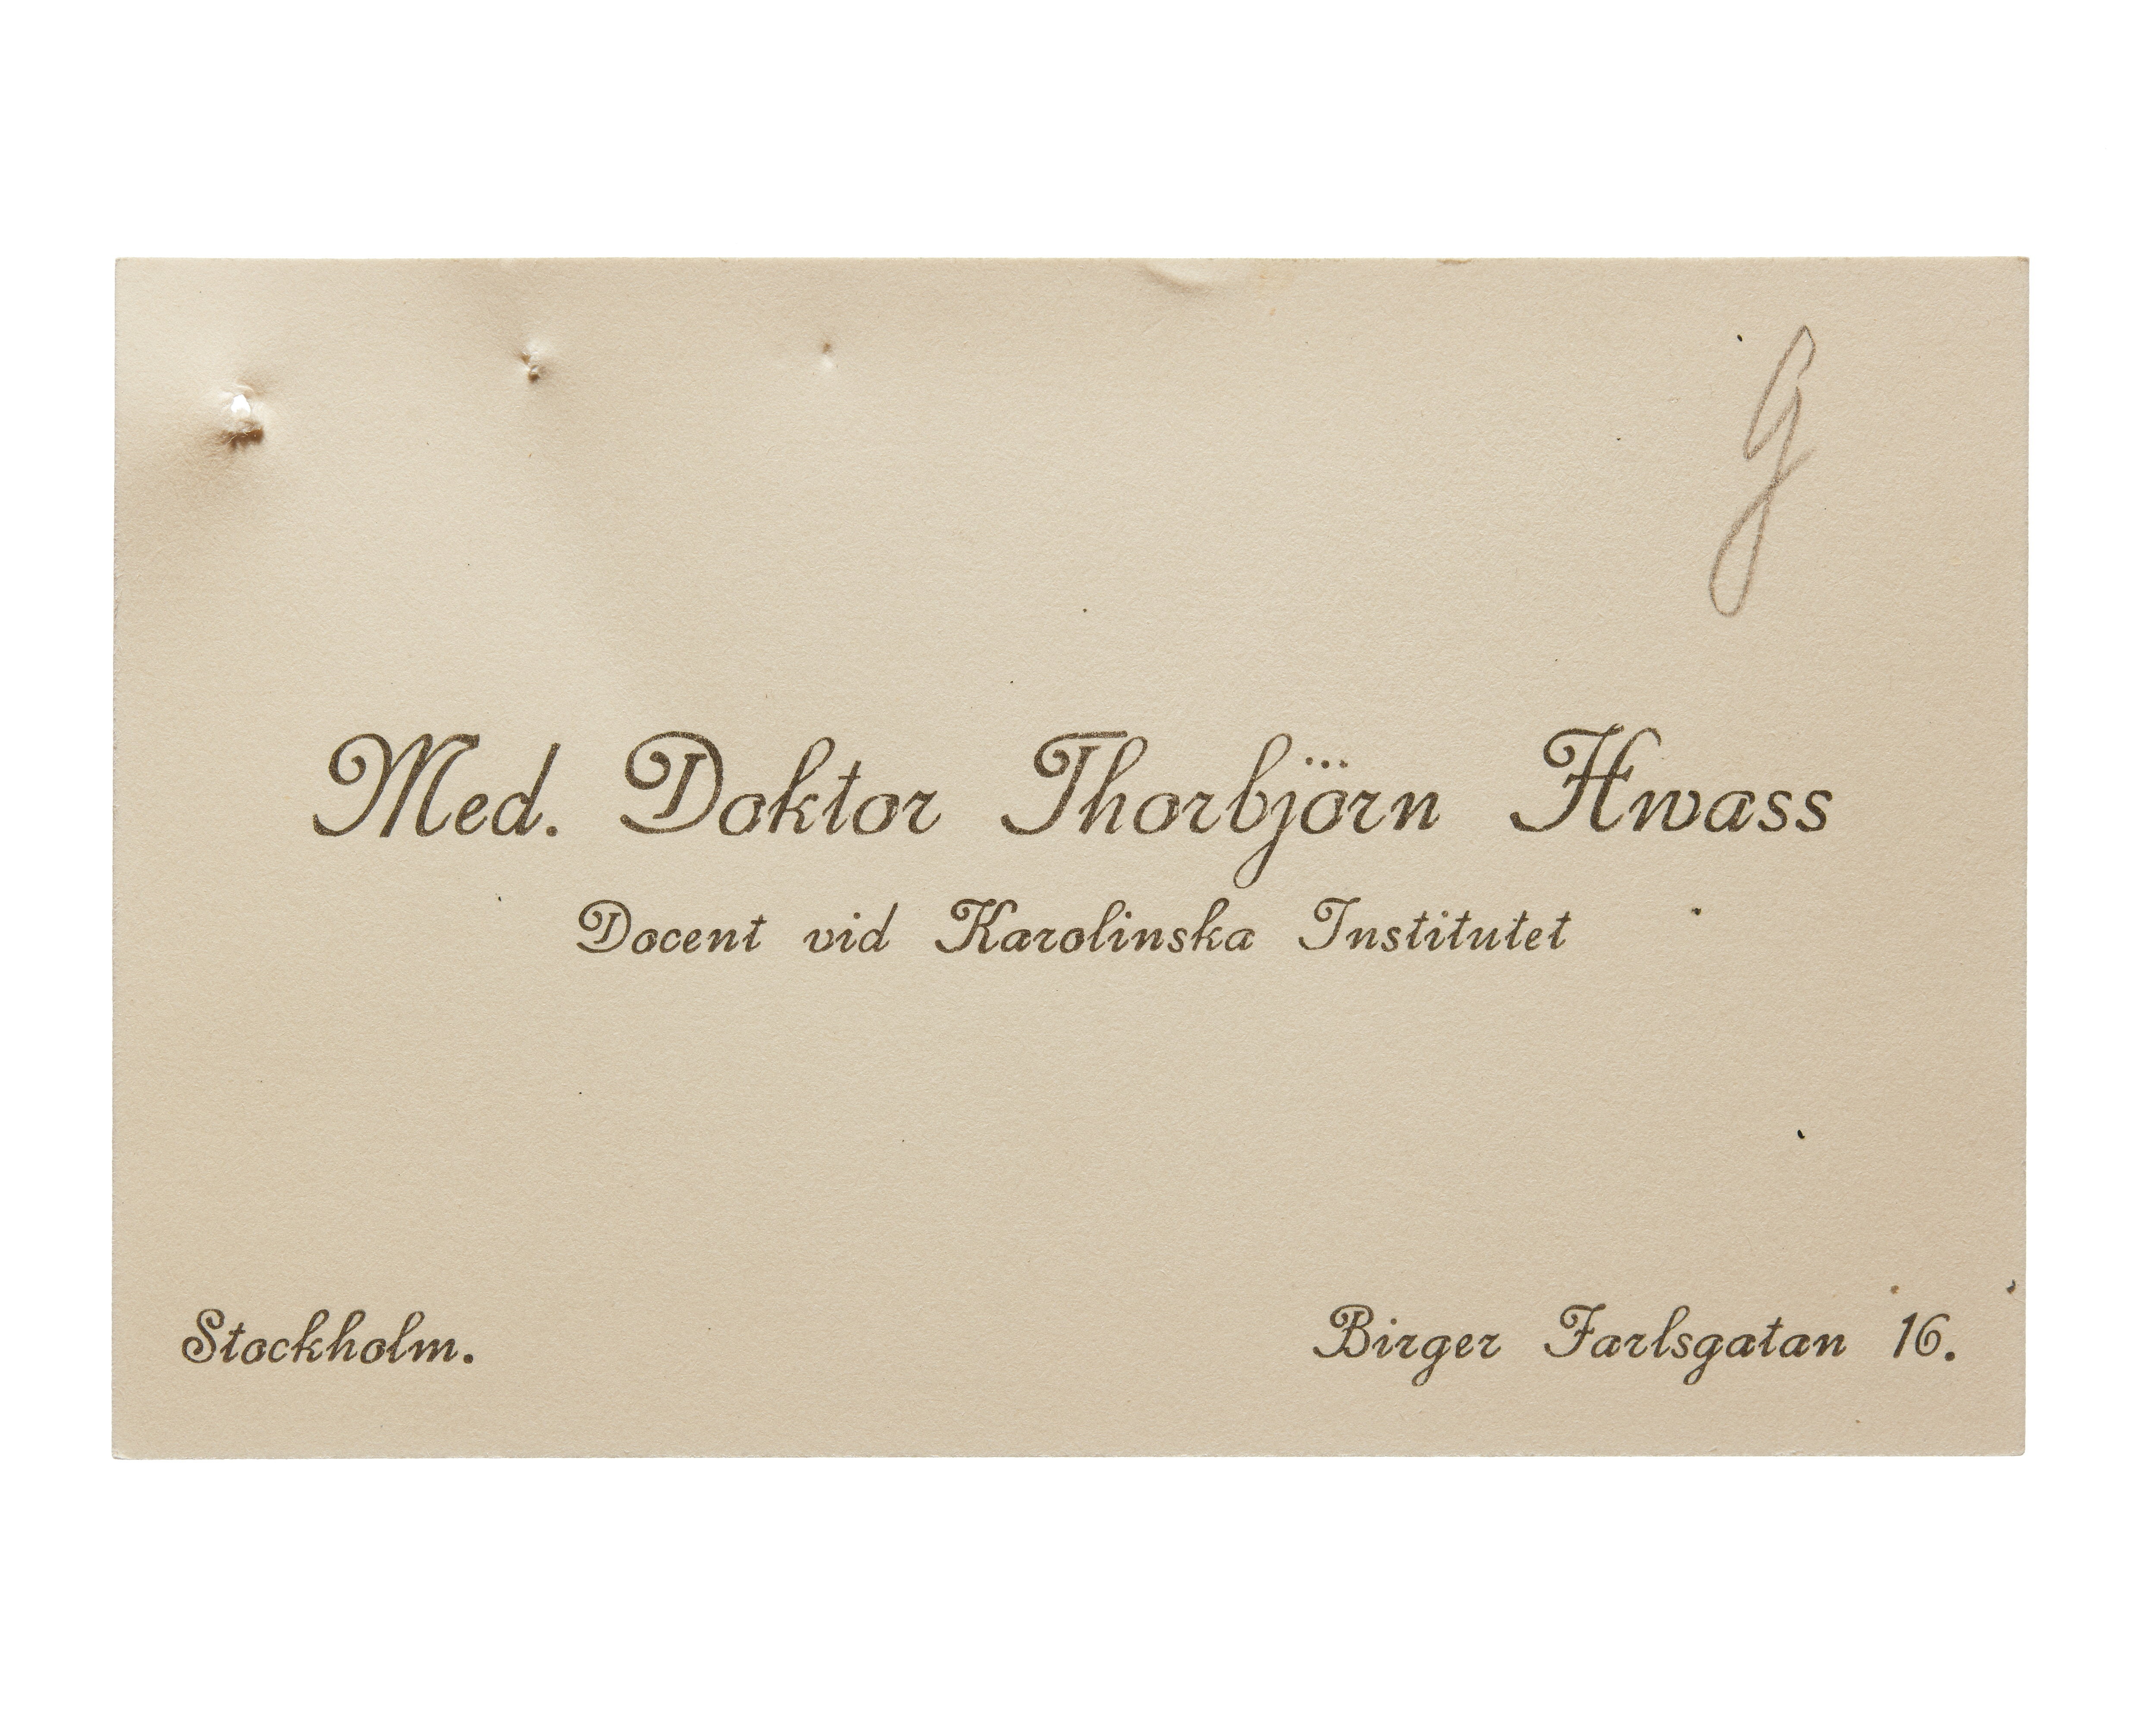 g
Med. Doktor Thorbjörn Hwass
Docent vid Karolinska Institutet
Stockholm.
Birger Jarlsgatan 16.